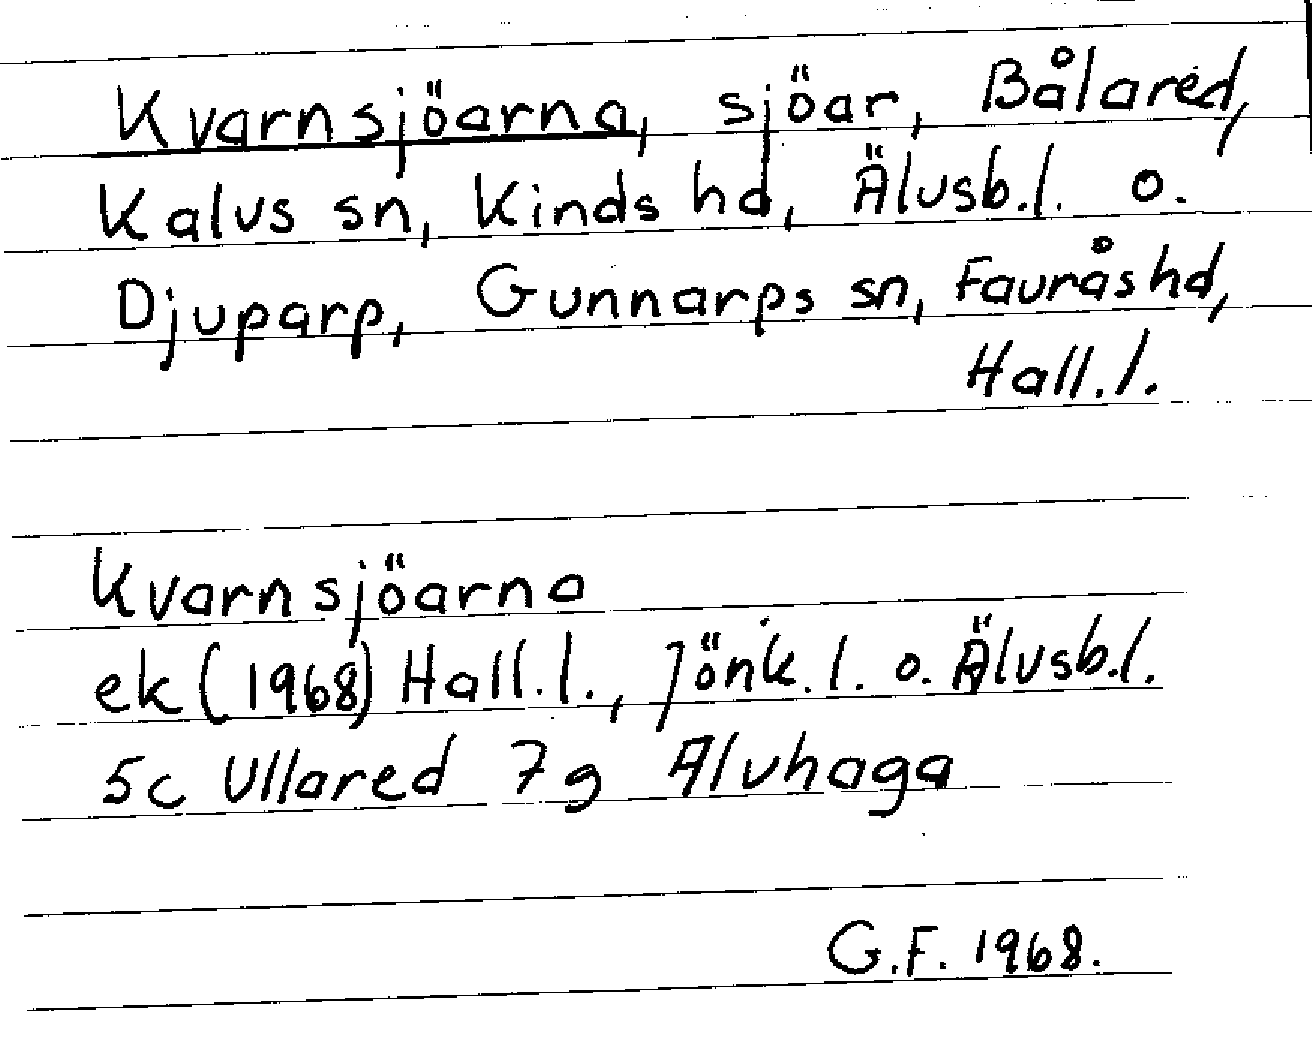 Kvarnsjöarna, sjöar, Bålared,
Kalvs sn, Kinds hd, Älvsb.l. o.
Djuparp, Gunnarps sn, Fauråshd,
Hall.l.
Kvarnsjöarna
ek (1968) Hall.l., Jönk.l. o. Älvsb.l.
5c Ullared 7g Älvhaga
G.F. 1968.